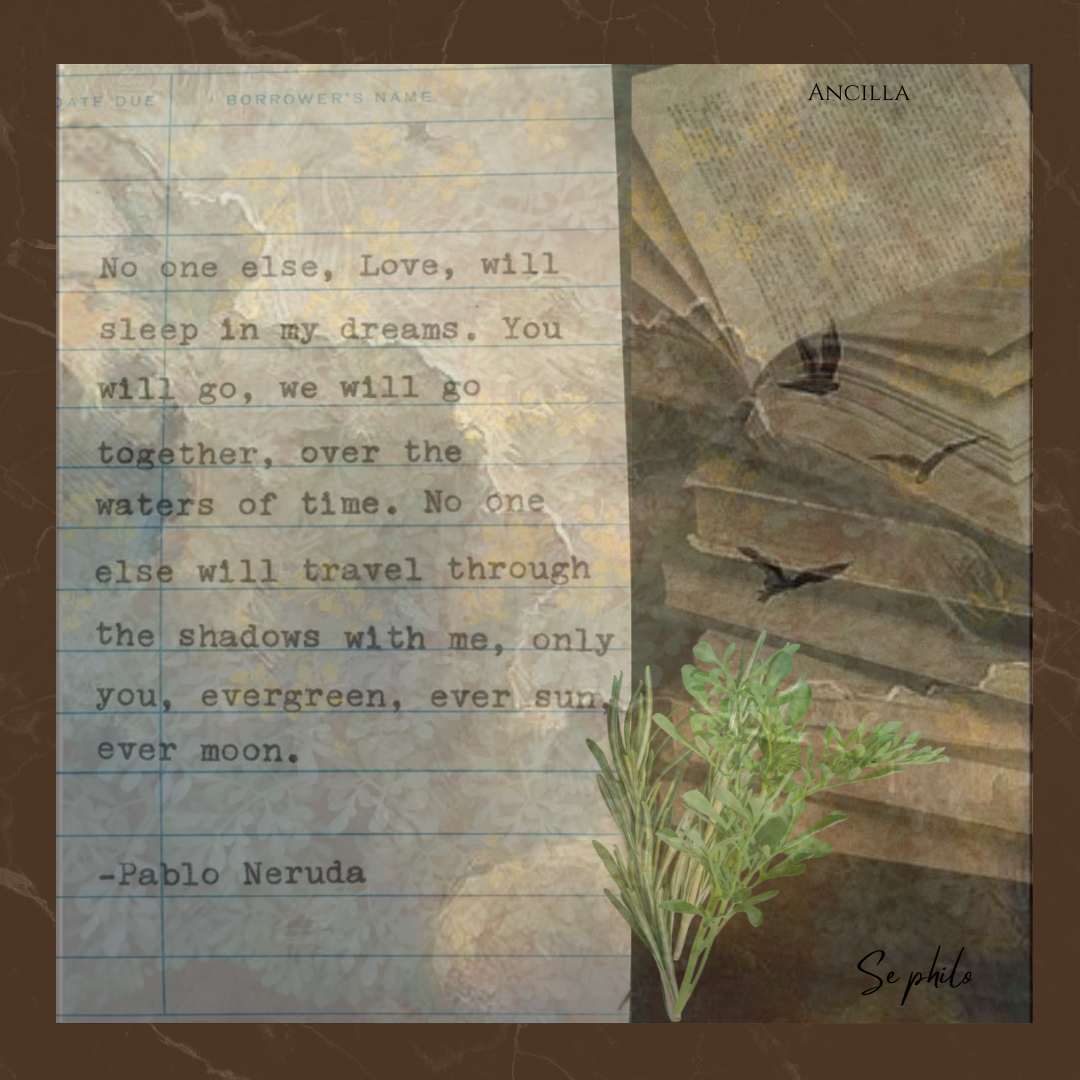 DATE DUE BORROWER'S NAME
ANCILLA
No one else, Love, will
sleep in my dreams. You
will go, we will go
together, over the
waters of time. No one
else will travel through
the shadows with me, only
you, evergreen, ever sun,
ever moon.
-Pablo Neruda
Se philo